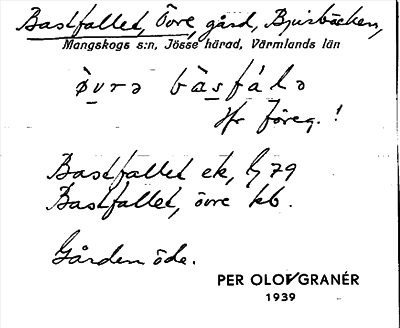 Bastfallet, Övre, gård, Bjursbäcken,
Mangskogs s:n, Jösse härad, Värmlands län
òvrə bàsfálə
Jfr föreg.!
Bastfallet ek, Lj 79
Bastfallet, övre kb.
Gården öde.
PER OLOV GRANÉR
1939